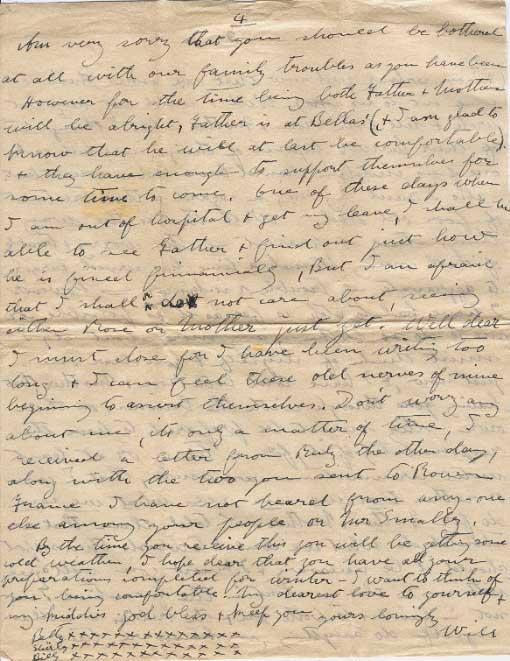 4
Am very sorry that you should be bothered
at all with our family troubles as you have been
However for the time being both Father & Mother
will be alright, Father is at Bellas' (& I am glad to
know that he will at last be comfortable)
& they have enough to support themselves for
some time to come. One of these days when
I am out of hospital & get my leave, I shall be
able to see Father & find out just how
he is fixed finnanially, But I am afraid
that I shall not care about seeing
either Rose or Mother just yet. Well dear
I must close for I have been writing too
long & I can feel these old nerves of mine
beginning to assert themselves. Don't worry any
about me, its only a matter of time, I
received a letter from Ruby the other day,
along with the two you sent to Rouen
France I have not heard from any-one
else among your people or Mr Smally.
By the time you receive this you will be getting some
cold weather, I hope dear that you have all your
preparations completed for winter - I want to think of
you being comfortable. My dearest love to yourself &
my kiddies god bless & keep you yours lovingly
Will
Betty xxxxxxxxxxxxxx
xxxxxxxxxxxxxx
Billy xxxxxxxxxxxxxx